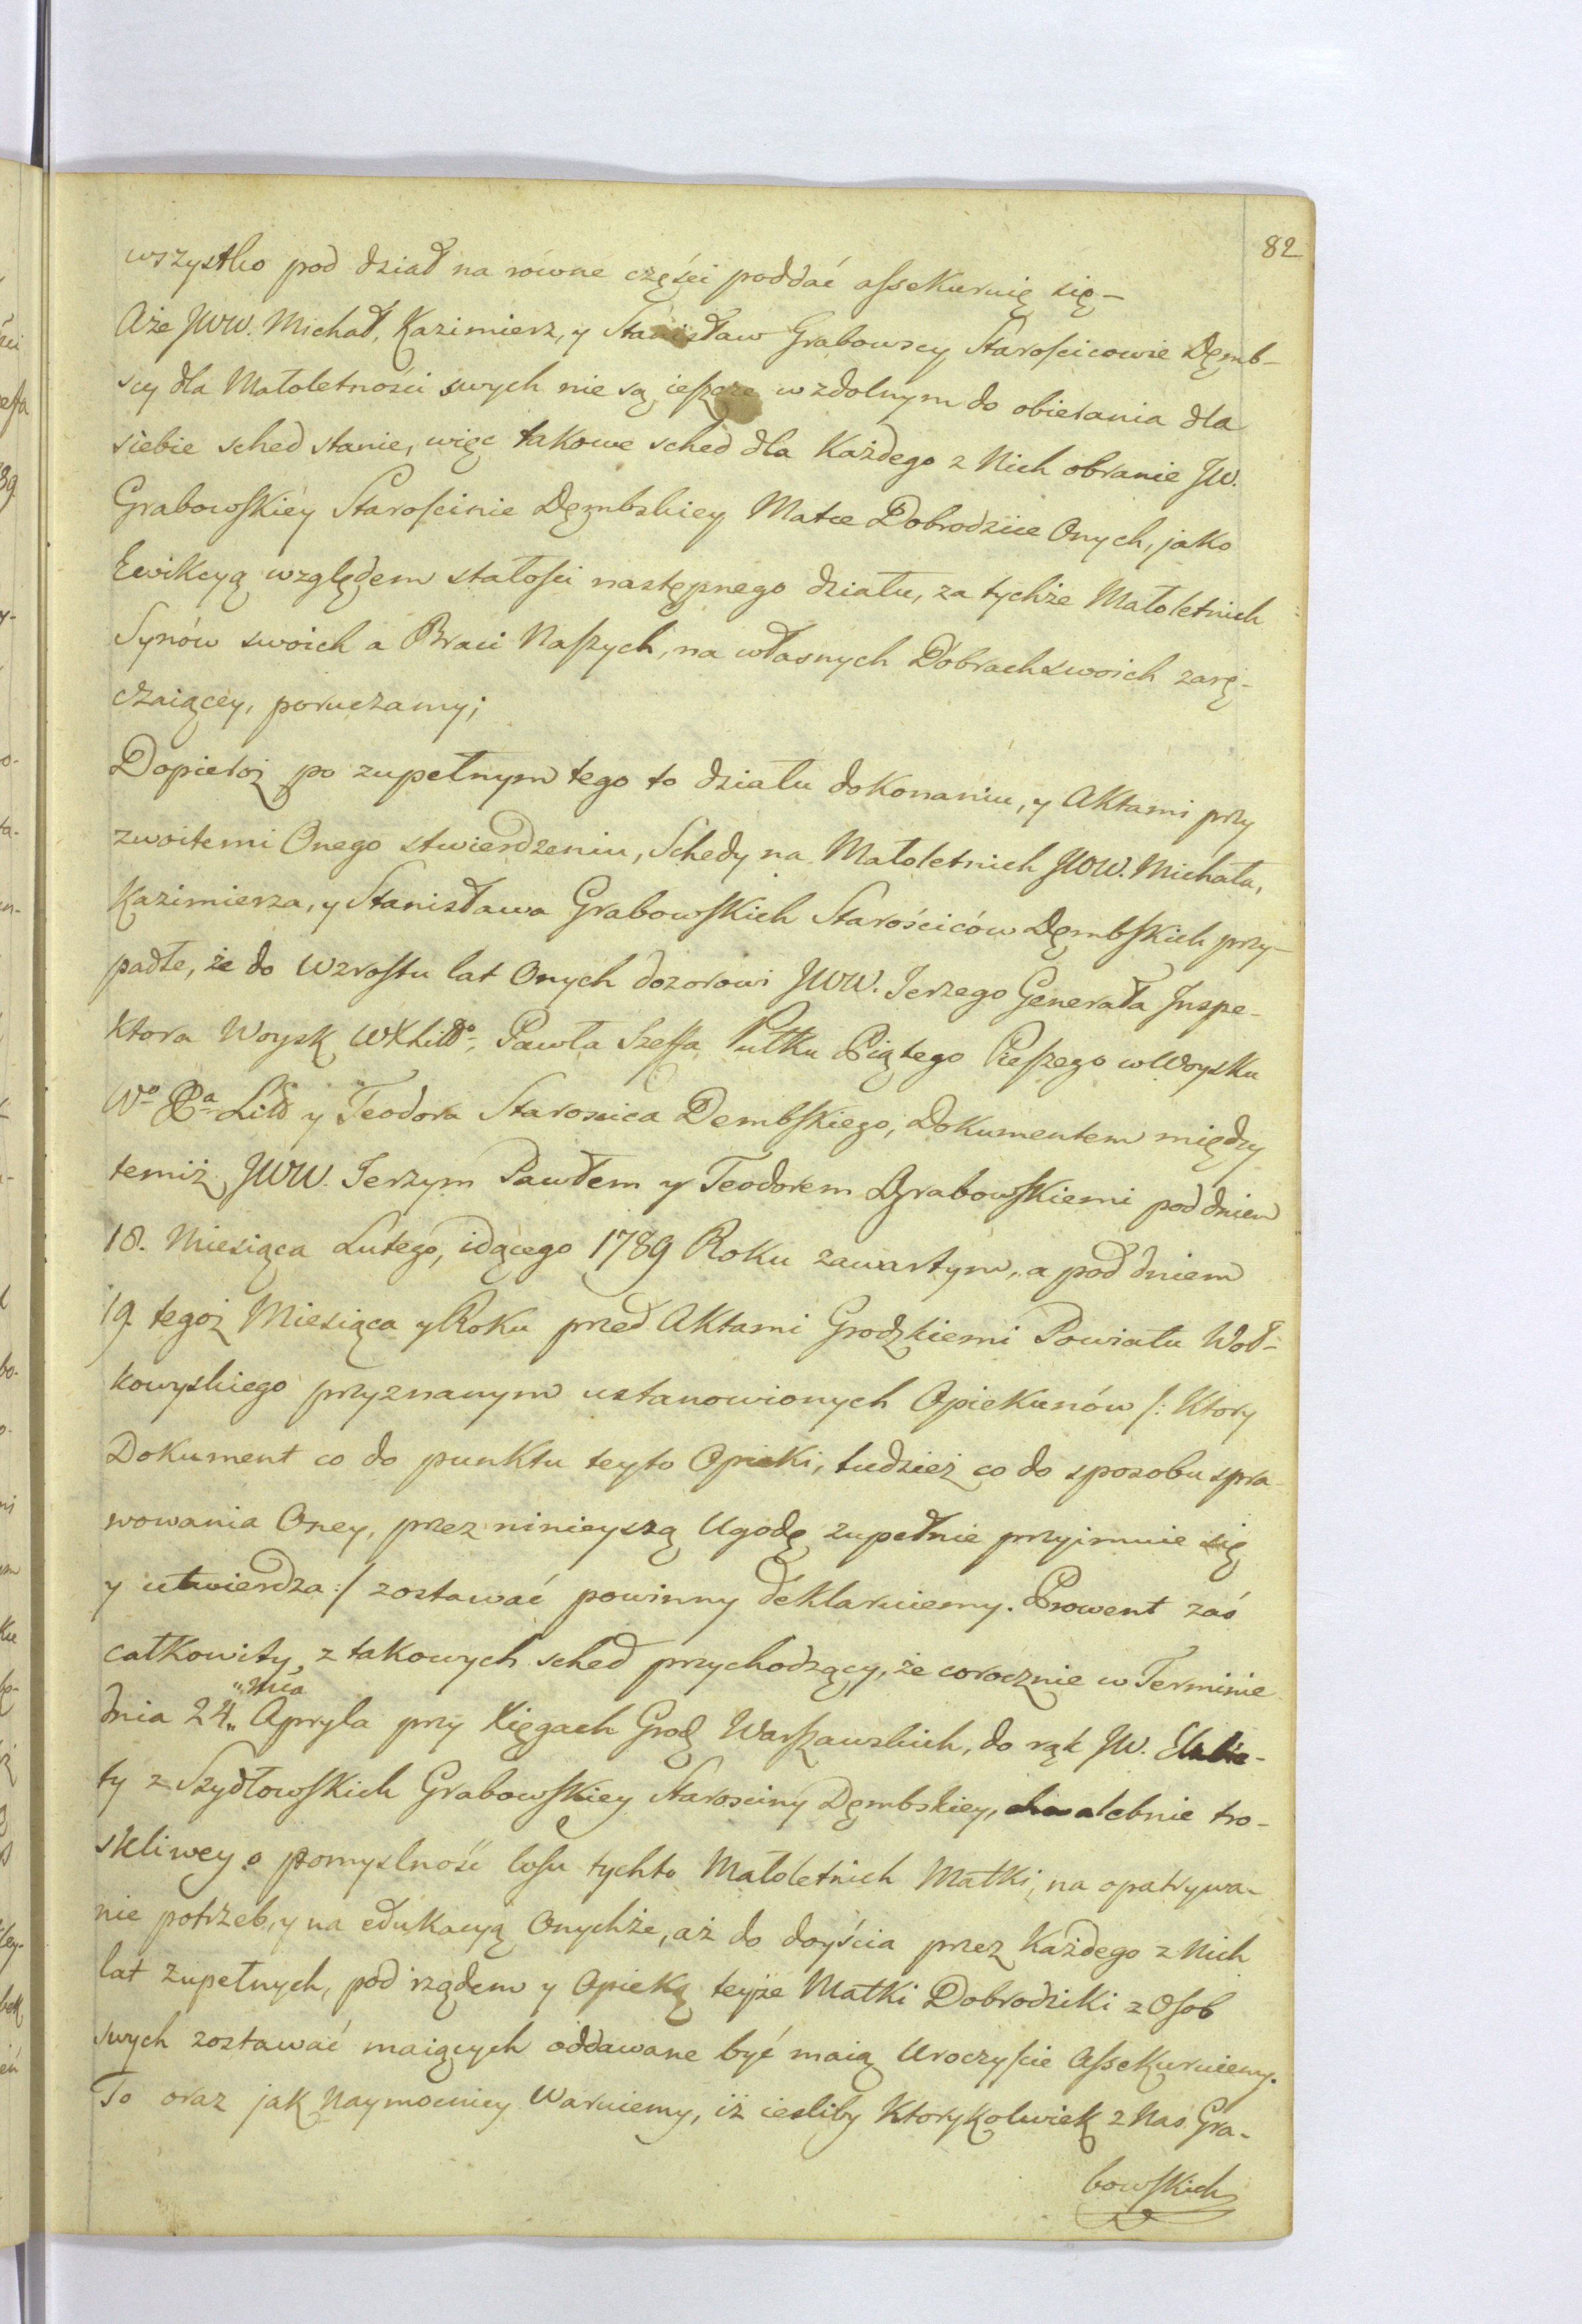 82
wszystko pod dział na rowne częsci poddać assekuruię się —
Aże JWW. Michał, Kazimierz, y Stanisław Grabowscy Starościcowie Dęmb-
scy dla Małoletnosci swych nie są ieszcze w zdolnym do obierania dla
siebie sched stanie, więc takowe sched dla Każdego z Nich obranie JW.
Grabowskiéy Starościnie Dęmbskiey Matce Dobrodziice Onych, jako
Ewikcyą względem stałości następnego działu, za tychże Małoletnich
Synów swoich a Braci Naszych, na własnych Dóbrach swoich zarę-
czaiącey, poruczamy;
Dopieroż po zupełnym tego to działu dokonaniu, y Aktami przy
zwoitemi Onego stwierdzeniu, Schedy na Małoletnich JWW. Michała,
Kazimierza, y Stanisława Grabowskich Starościców Dęmbskich przy-
padłe, że do Wzrostu lat Onych dozorowi JWW. Jerzego Generała Inspe-
ktora Woysk WXLitto, Pawła Szeffa Pułku Piątego Pieszego w Woysku
Wo Xa Litt y Teodora Staroscica Dembskiego, Dokumentem między
temiż JWW. Jerzym Pawłem y Teodorem Grabowskiemi pod dniem
18. Miesiąca Lutego, idącego 1789 Roku zawartym, a pod dniem
19. tegoż Miesiąca y Roku przed Aktami Grodzkiemi Powiatu Woł-
kowyskiego przyznanym ustanowionych Opiekunów /: Ktory
Dokument co do punktu teyto Opieki, tudzież co do sposobu spra-
wowania Oney, przez ninieyszą Ugodę zupełnie przyimuie się
y utwierdza :/ zostawać powinny deklaruiemy. Prowent zaś
całkowity, z takowych sched przychodzący, że corocznie w Terminie
dnia 24 „Mca„ Apryla przy Xięgach Grodz Warszawskich, do rąk JW. Elżbie-
ty z Szydłowskich Grabowskiey Starosciny Dęmbskiey, chwalebnie tro-
skliwey o pomyslność losu tychto Małoletnich Matki, na opatrywa-
nie potrzeb, y na edukacyą Onychże, aż do doyścia przez Każdego z Nich
lat zupełnych, pod rządem y Opieką teyże Matki Dobrodziki z Osob
swych zostawać maiących oddawane być maią Uroczyście Assekuruiemy.
To oraz jak Naymocniey Waruiemy, iż iesliby Ktorykolwiek z Nas Gra-
bowskich